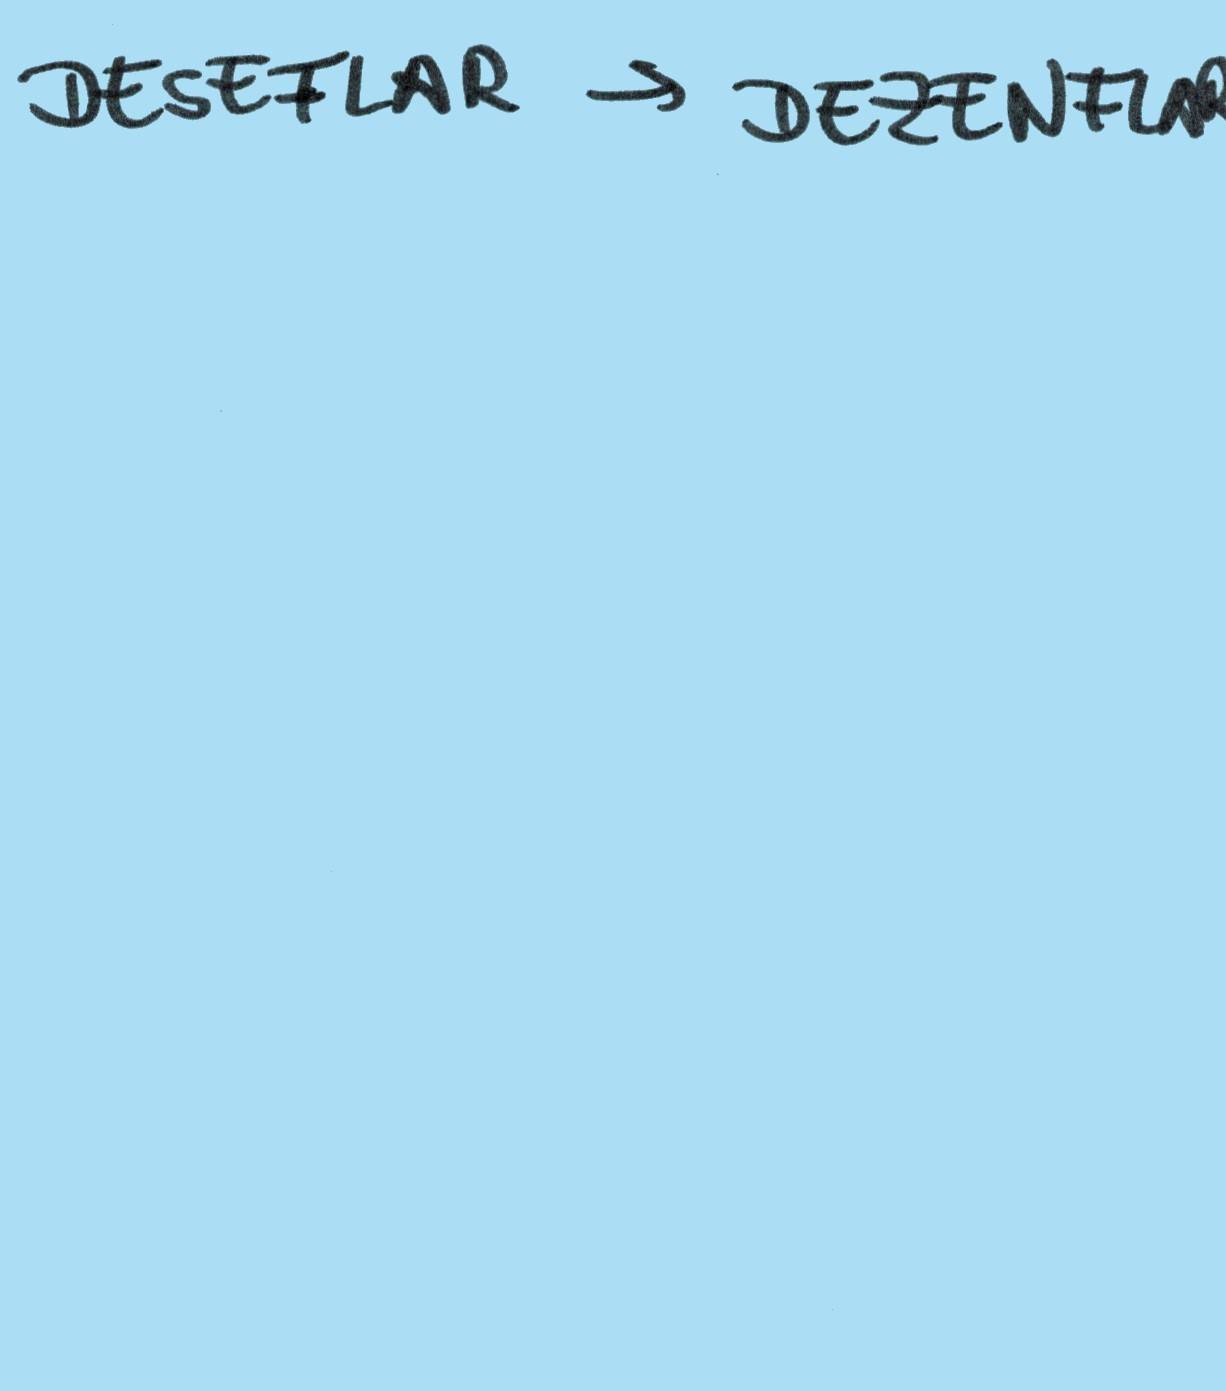 DESEFLAR → DEZENFLAR